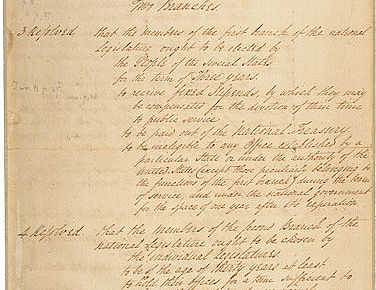 Two Branches
3 Resolved that the members of the first branch of the national
Legislature ought to be elected by
the People of the several States
for the term of Three years.
to receive fixed Stipends, by which they may
be compensated for the devotion of their time
to public service
to be paid out of the National-Treasury.
to be ineligible to any Office established by a
particular State or under the authority of the
United States (except those peculiarly belonging to
the functions of the first branch) during the term
of service, and under the national government
for the space of one year after its expiration
4 Resolved. that the members of the second Branch of the
national Legislature ought to be chosen by
the individual Legislatures.
to be of the age of thirty years at least
to hold their offices for a time sufficient to